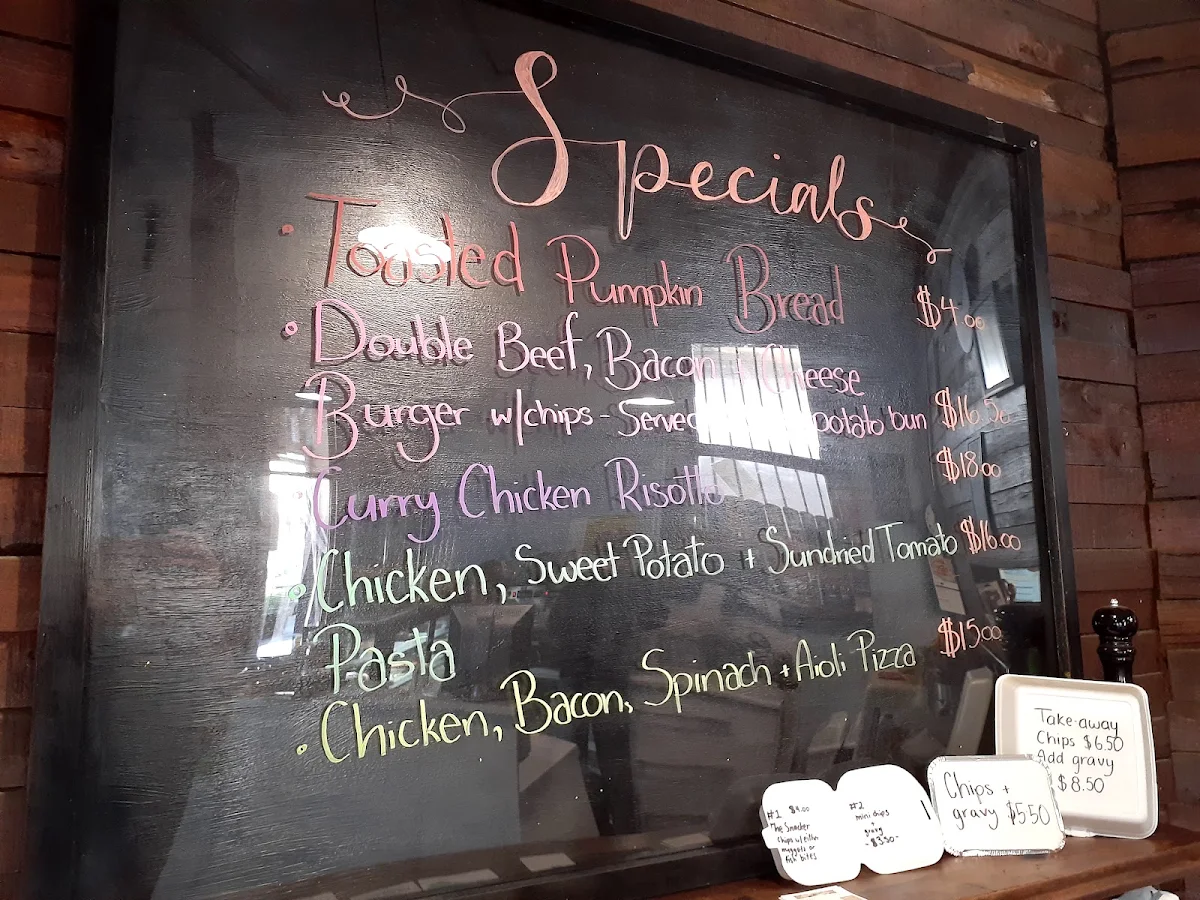 Specials
• Toasted Pumpkin Bread $4.00
• Double Beef, Bacon + Cheese
Burger w/chips - Served potato bun $16.50
Curry Chicken Risotto $18.00
• Chicken, Sweet Potato + Sundried Tomato $16.00
Pasta
• Chicken, Bacon, Spinach + Aioli Pizza $15.00
Take-away
Chips $6.50
Add gravy
$8.50
Chips +
gravy $5.50
#1 $9.00
The Snacker
chips w/ either
nuggets or
fish bites
#2
mini chips
+
gravy
- $3.50 -